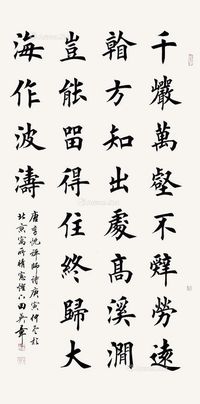 千巖萬壑不辭勞遠
看方知出處高溪澗
豈能留得住終歸大
海作波濤
唐李忱禪師詩庚寅仲冬於
北京寓所田英章